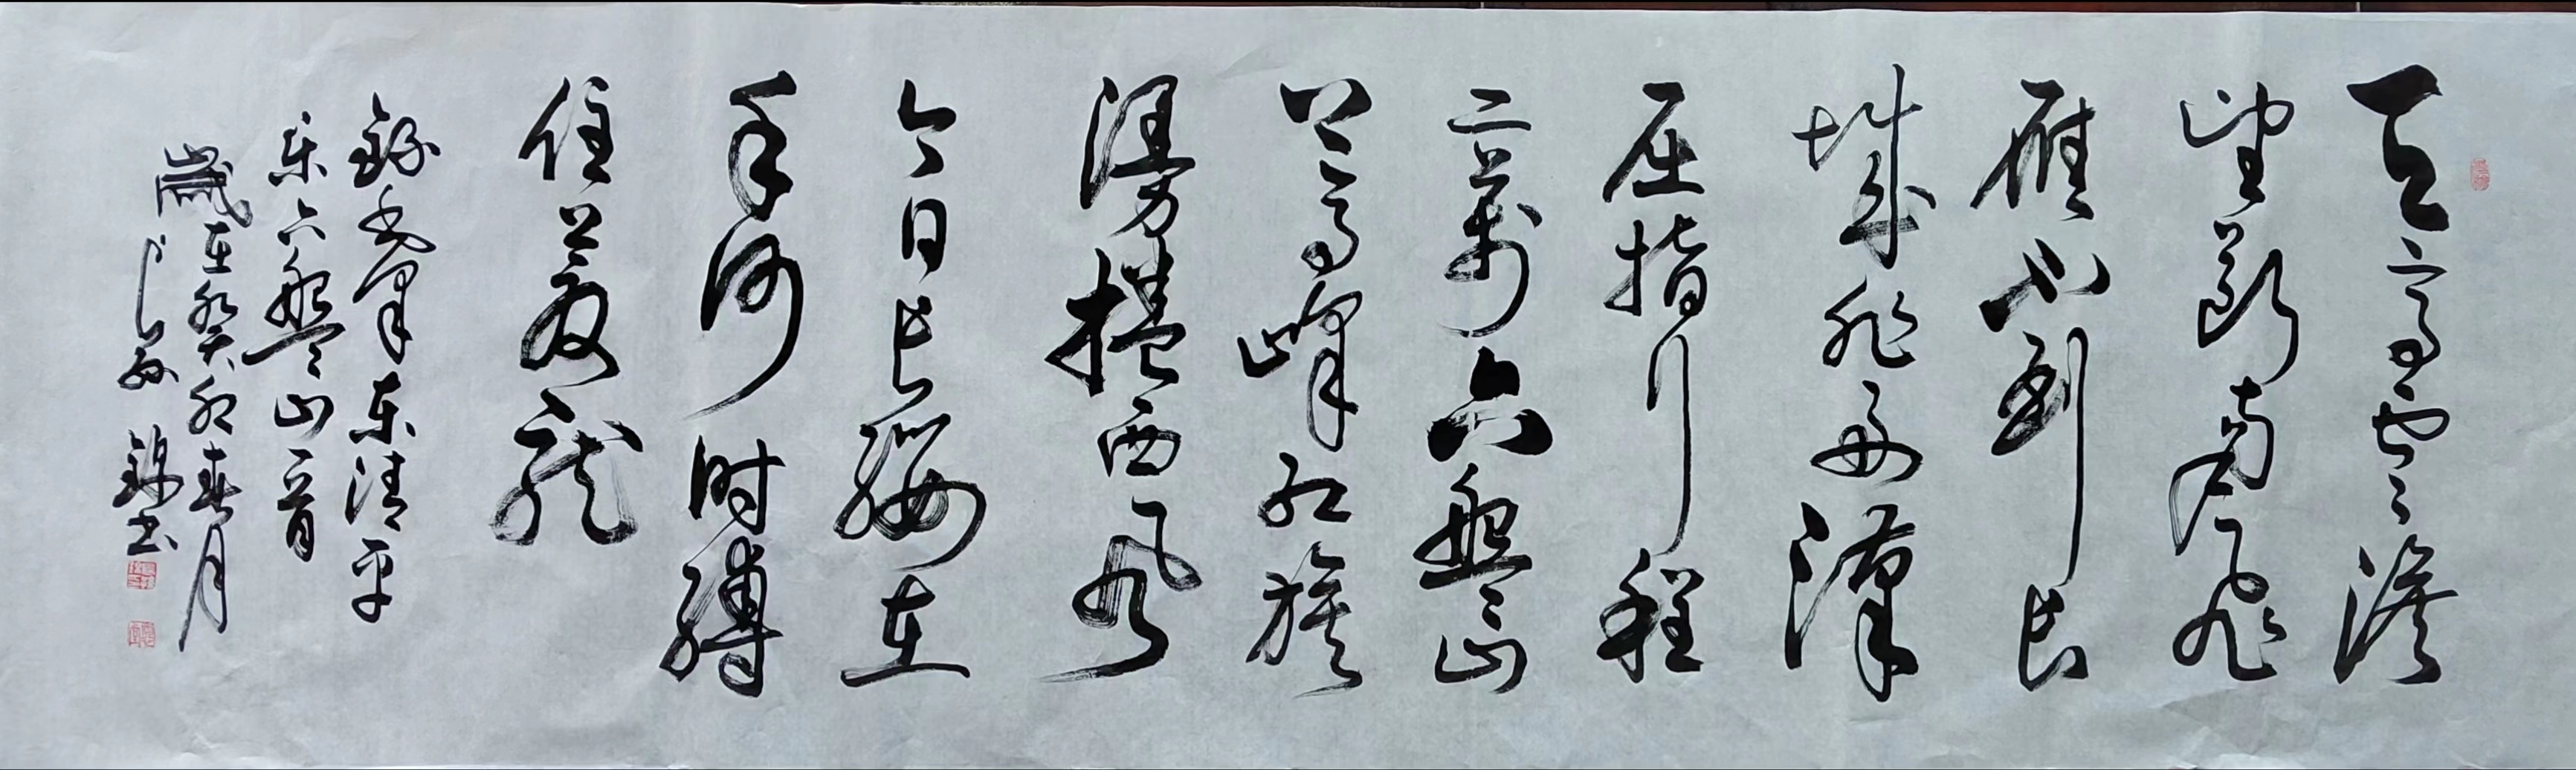 天高云淡
望断南飞
雁不到长
城非好汉
屈指行程
二万六盘山
上高峰红旗
漫卷西风
今日长缨在
手何时缚
住苍龙
录毛泽东清平
乐六盘山一首
岁在癸卯春月
书